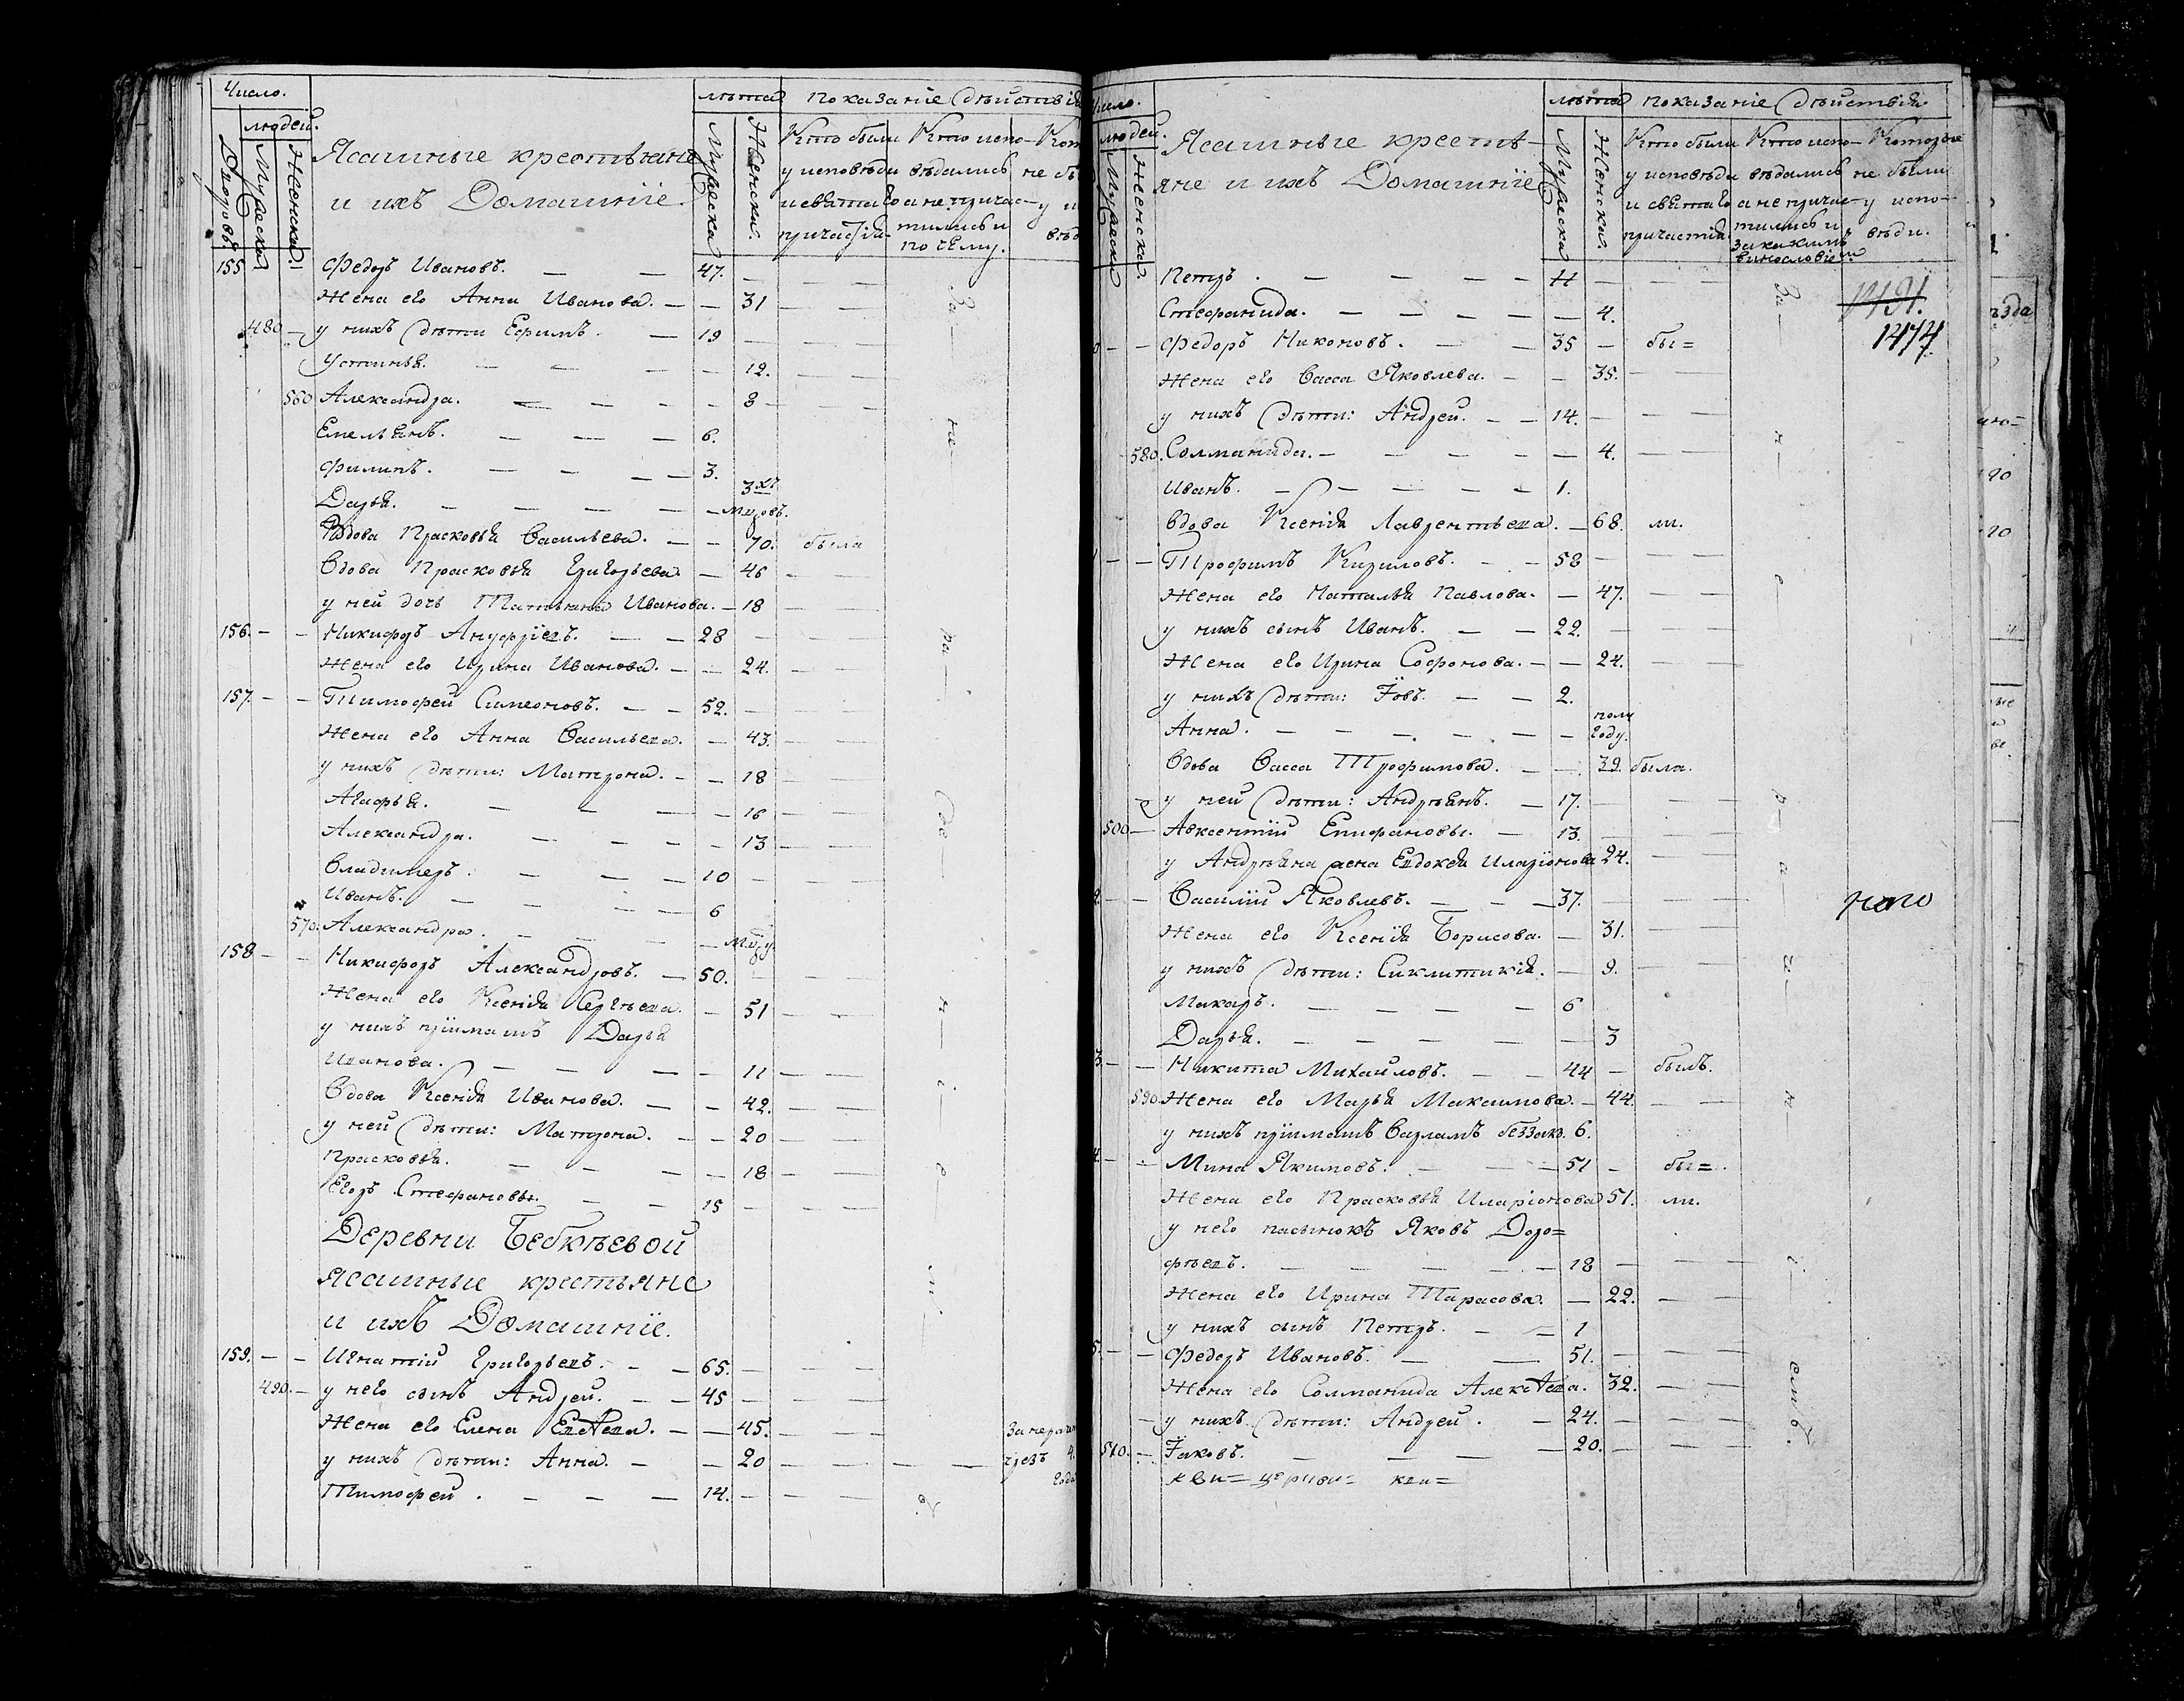 Число.
людей.
Дворовъ.
Мужеска
Женска.
Ясашные крестьяне
и ихъ Домашніе.
лѣта
Мужеска
Женска.
показаніе дѣйствія
Кто были
у исповѣди
и святаго
причастія.
Кто испо-
вѣдались
а не причас-
тились и
по чему.
155 Федоръ Ивановъ. — — 47. —
Жена его Анна Иванова. — — 31
480 — у нихъ дѣти Ефимъ. — 19
Устинья. — — — 12.
560 Александра. — — — 8
Емельянъ. — — — 6.
Филипъ. — — — 3.
Дарья. — — — — 3хъ мцовъ.
Вдова Прасковья Васильева. — — 70. была
Вдова Прасковья Григорьева. — 46
у ней дочь Татьяна Иванова. — 18
156. — — Никифоръ Ануфріевъ. — — 28
Жена его Ирина Иванова. — — 24.
157. — — Тимофей Симеоновъ. — — 52.
Жена его Анна Васильева. — 43.
у нихъ дѣти: Матрона. — — 18
Агафья. — — — — 16
Александра. — — — — 13
Владимеръ. — — — 10
Иванъ. — — — 6
570. Александра. — — — — мцу.
158 — — Никифоръ Александровъ. — 50.
Жена его Ксенія Сергѣева. — 51
у нихъ пріимашъ Дарья
Иванова. — — — — 11
Вдова Ксенія Иванова. — — 42.
у ней дѣти: Матрона. — — 20
Прасковья. — — — — 18
Егоръ Стефановы. — — 15
Деревни Бебкѣевой
ясашные крестьяне
и ихъ Домашніе.
159. — — Игнатій Григорьевъ. — — 65.
490. — у него сынъ Андрей. — — 45
Жена его Елена — — 45.
у нихъ дѣти: Анна. — — 20
Тимофей. — — — 14.
За нера
чрезъ 4.
года
За не ра де н і е
людей.
Мужеска
Женска.
Ясашные кресть-
яне и ихъ Домашніе
лѣта
Мужеска
Женска.
показаніе дѣйствія.
Кто были
у исповѣди
и святаго
причастія.
Кто испо-
вѣдались
а не причас-
тились и
за какимъ
винословіемъ.
Которые
не были
у испо-
вѣди.
1474
Петръ. — — — — —
Стефанида. — — — — — 4.
— — Федоръ Никоновъ. — — 35 — бы=
Жена его Васса Яковлева. — — 35.
у нихъ дѣти: Андрей. — — 14.
580. Солманида. — — — — — 4.
Иванъ. — — — — — 1.
Вдова Ксенія Лаврентьева. — 68. ли.
— — Трофимъ Кириловъ. — — 58
Жена его Наталья Павлова. — 47.
у нихъ сынъ Иванъ. — — 22.
Жена его Ирина Софонова. — — 24.
у нихъ дѣти: Іовъ. — — 2.
Анна. — — — — — — полу году.
Вдова Васса Трофимова. — — 39. была.
у ней дѣти: Андреянъ. — 17.
500 — Авксентій Епифановы. — 13.
у Андреяна жена Евдокѣя Иларіонова 24.
— — Василій Яковлевъ. — — — 37.
Жена его Ксенія Борисова. — 31.
у нихъ дѣти: Сиклитикія. — 9.
Макаръ. — — — — 6
Дарья. — — — — — 3
3. — — Никита Михайловъ. — — 44 — былъ.
590. Жена его Марья Максимова. — 44.
у нихъ пріимашъ Варламъ беззак. 6.
4. — — Мина Якимовъ. — — 51 — бы=
Жена его Прасковья Иларіонова 51. ли.
у него пасынокъ Яковъ Доро=
фѣевъ. — — — — — 18
Жена его Ирина Тарасова. — 22.
у нихъ сынъ Петръ. — — 1
5. — — Федоръ Ивановъ. — — 51.
Жена его Солманида Алексѣева. 32.
— у нихъ дѣти: Андрей. — 24.
510. — Іаковъ. — — — — 20.
За н е р а д е н і емъ.